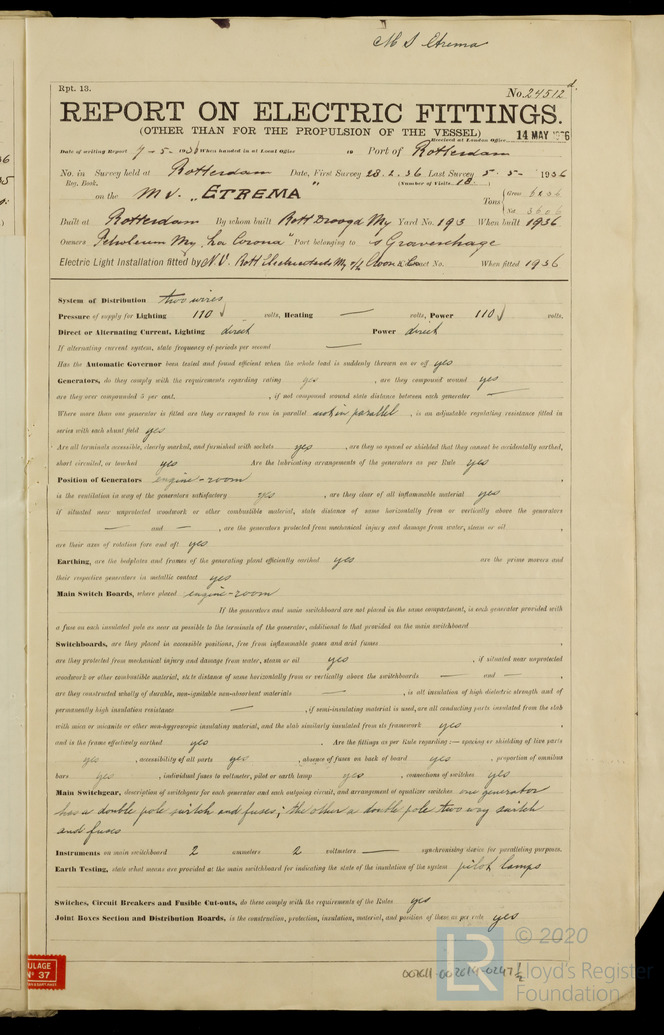 M S Etrema
Rpt. 13.
No. 24512
REPORT ON ELECTRIC FITTINGS.
(OTHER THAN FOR THE PROPULSION OF THE VESSEL)
Received at London Office 14 MAY
Date of writing Report 7-5-1936 When handed in at Local Office 19 Port of Rotterdam
No. in Survey held at Rotterdam Date, First Survey 28.2.36 Last Survey 5-5-1936
Reg. Book. (Number of Visits 18)
on the M V. "ETREMA" Tons { Gross
Net
Built at Rotterdam By whom built Rott Droogd My Yard No. 193 When built 1936
Owners Petroleum My "La Corona" Port belonging to s Gravenhage
Electric Light Installation fitted by N.V. Rott Contract No. When fitted 1936
System of Distribution two wires
Pressure of supply for Lighting 110 volts, Heating — volts, Power 110 volts.
Direct or Alternating Current, Lighting direct Power direct
If alternating current system, state frequency of periods per second —
Has the Automatic Governor been tested and found efficient when the whole load is suddenly thrown on or off yes
Generators, do they comply with the requirements regarding rating yes, are they compound wound yes
are they over compounded 5 per cent. , if not compound wound state distance between each generator —
Where more than one generator is fitted are they arranged to run in parallel not in parallel, is an adjustable regulating resistance fitted in
series with each shunt field yes
Are all terminals accessible, clearly marked, and furnished with sockets yes, are they so spaced or shielded that they cannot be accidentally earthed,
short circuited, or touched yes Are the lubricating arrangements of the generators as per Rule yes
Position of Generators engine-room
is the ventilation in way of the generators satisfactory yes, are they clear of all inflammable material yes
if situated near unprotected woodwork or other combustible material, state distance of same horizontally from or vertically above the generators
— and —, are the generators protected from mechanical injury and damage from water, steam or oil ,
are their axes of rotation fore and aft yes
Earthing, are the bedplates and frames of the generating plant efficiently earthed yes are the prime movers and
their respective generators in metallic contact yes
Main Switch Boards, where placed engine-room
If the generators and main switchboard are not placed in the same compartment, is each generator provided with
a fuse on each insulated pole as near as possible to the terminals of the generator, additional to that provided on the main switchboard
Switchboards, are they placed in accessible positions, free from inflammable gases and acid fumes ,
are they protected from mechanical injury and damage from water, steam or oil yes, if situated near unprotected
woodwork or other combustible material, state distance of same horizontally from or vertically above the switchboards — and —,
are they constructed wholly of durable, non-ignitable non-absorbent materials —, is all insulation of high dielectric strength and of
permanently high insulation resistance —, if semi-insulating material is used, are all conducting parts insulated from the slab
with mica or micanite or other non-hygroscopic insulating material, and the slab similarly insulated from its framework yes,
and is the frame effectively earthed yes. Are the fittings as per Rule regarding:— spacing or shielding of live parts
yes, accessibility of all parts yes, absence of fuses on back of board yes, proportion of omnibus
bars yes, individual fuses to voltmeter, pilot or earth lamp yes, connections of switches yes
Main Switchgear, description of switchgear for each generator and each outgoing circuit, and arrangement of equalizer switches one generator
has a double pole switch and fuses; the other a double pole two way switch
and fuses
Instruments on main switchboard 2 ammeters 2 voltmeters — synchronising device for paralleling purposes.
Earth Testing, state what means are provided at the main switchboard for indicating the state of the insulation of the system pilot lamps
Switches, Circuit Breakers and Fusible Cut-outs, do these comply with the requirements of the Rules yes
Joint Boxes Section and Distribution Boards, is the construction, protection, insulation, material, and position of these as per rule yes
© 2020
Lloyd's Register
Foundation
LR
ULAGE
No 37